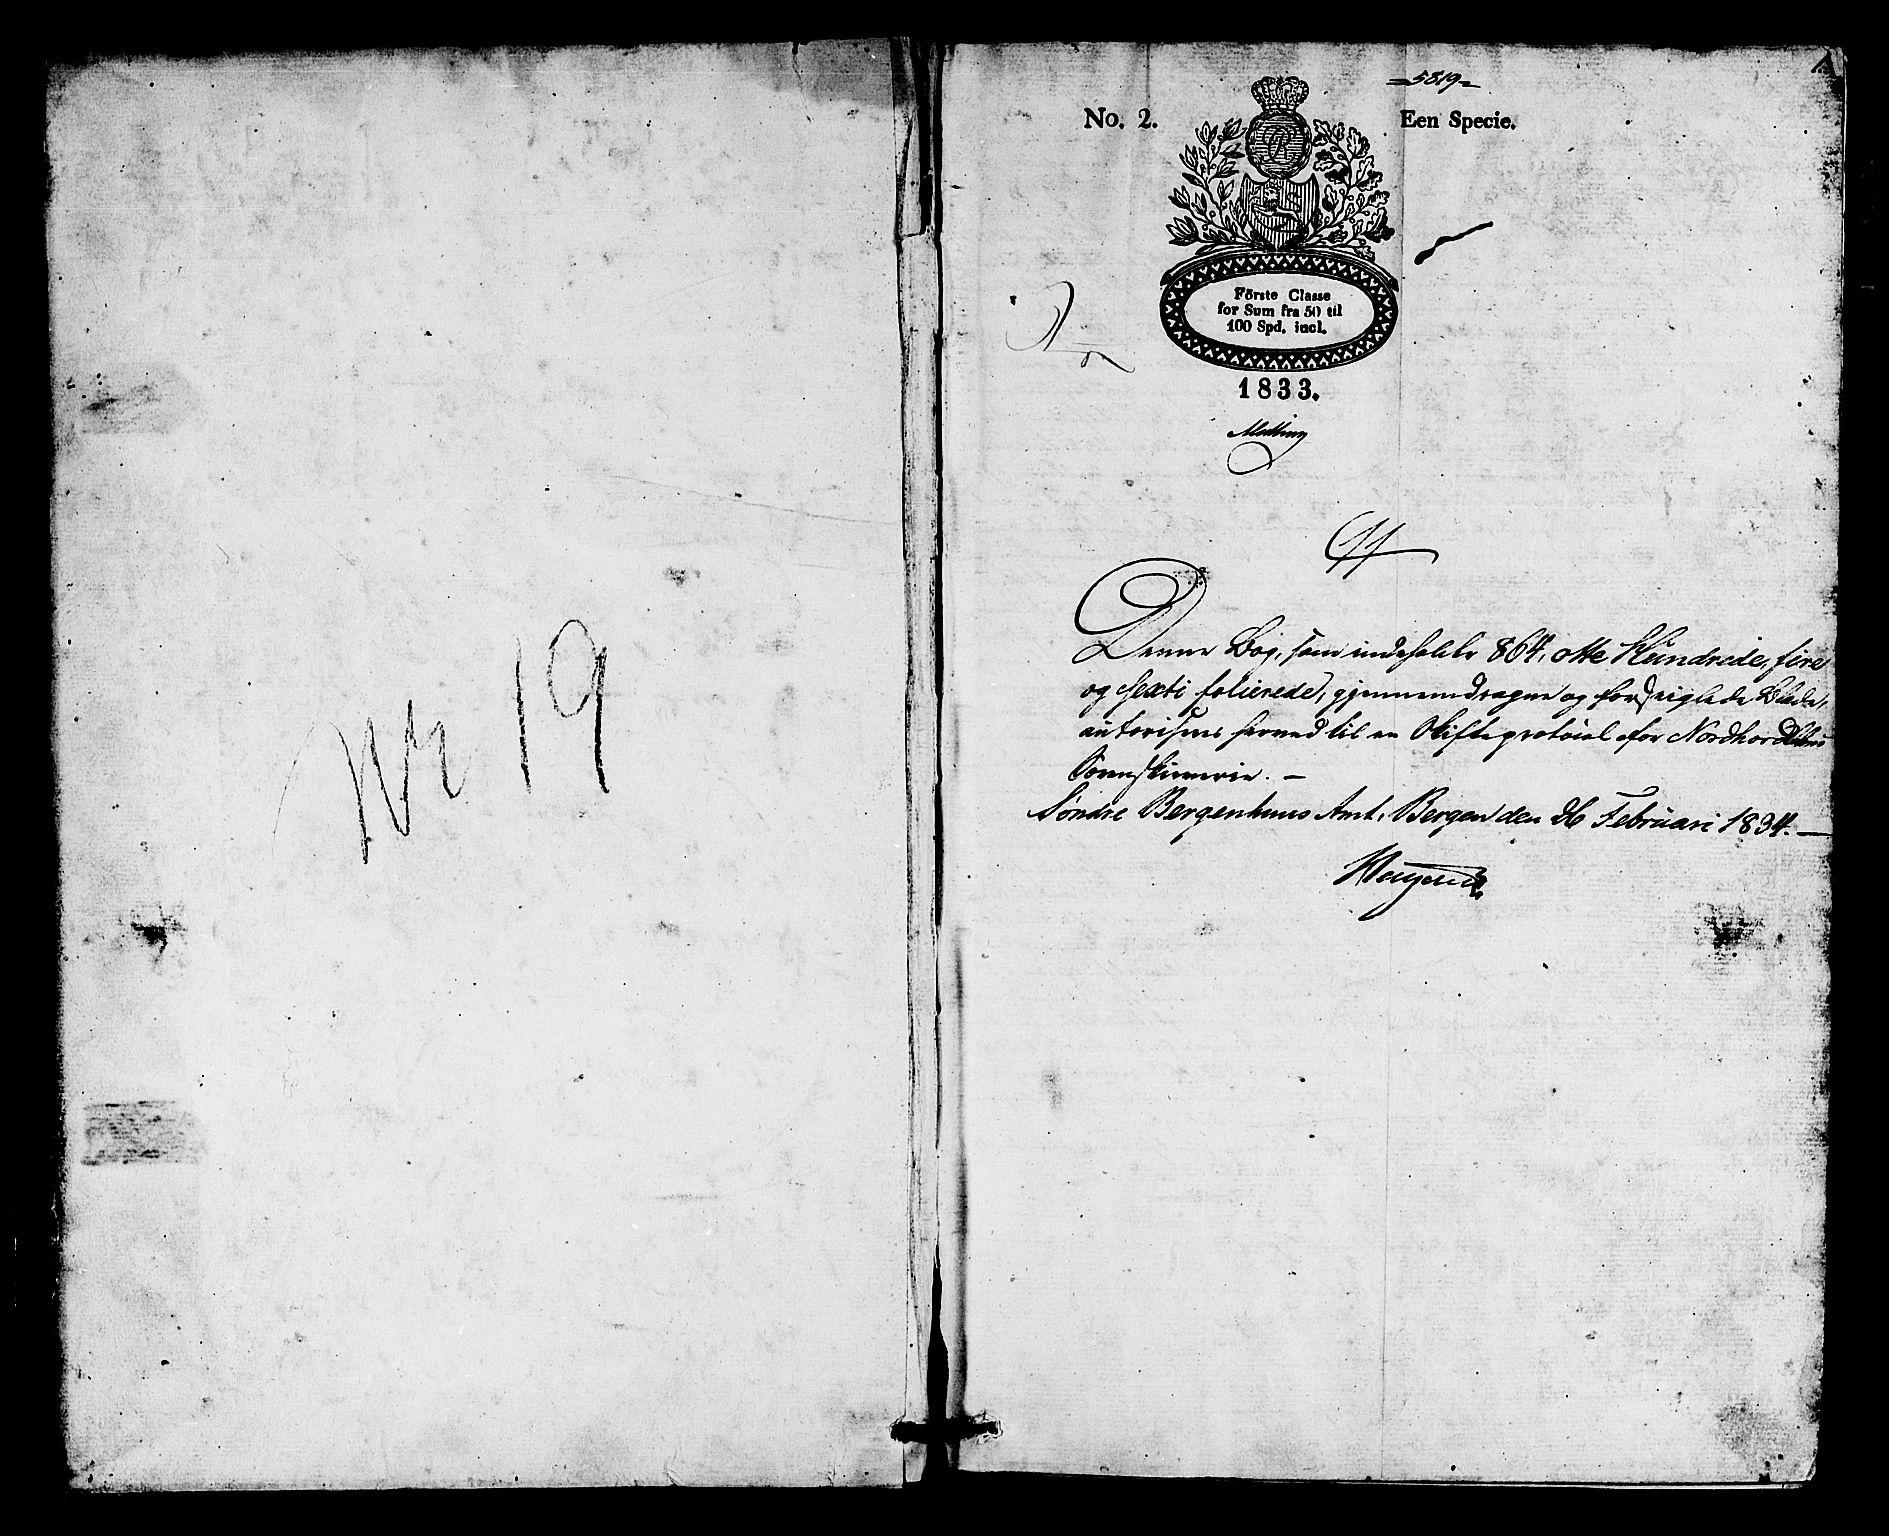 Nr 19
1
5819
No. 2.
Een Specie.
Förste Classe
for Sum fra 50 til
100 Spd. incl.
1833.
Denne Bog, som indeholder 864, otte Hundrede, fire
og sexti folierede, gjennemdragne og forseiglede Blade,
autoriseres herved til en Skifteprotocol for Nordhordlehns
Sorenskriverie. —
Søndre Bergenhuus Amt, Bergen den 26 Februari 1834. —